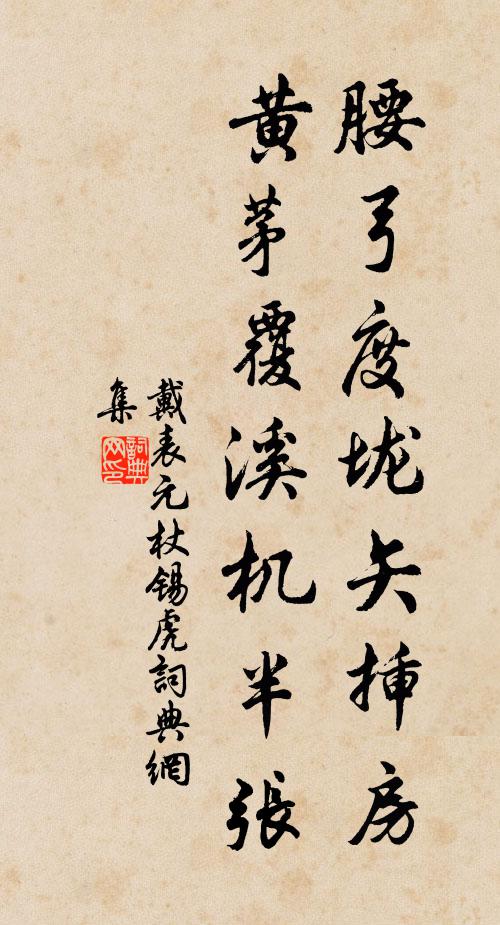 腰弓度垅矢插房
黄茅覆溪机半張
戴表元杖锡虎詞典網
集
詞典
网印